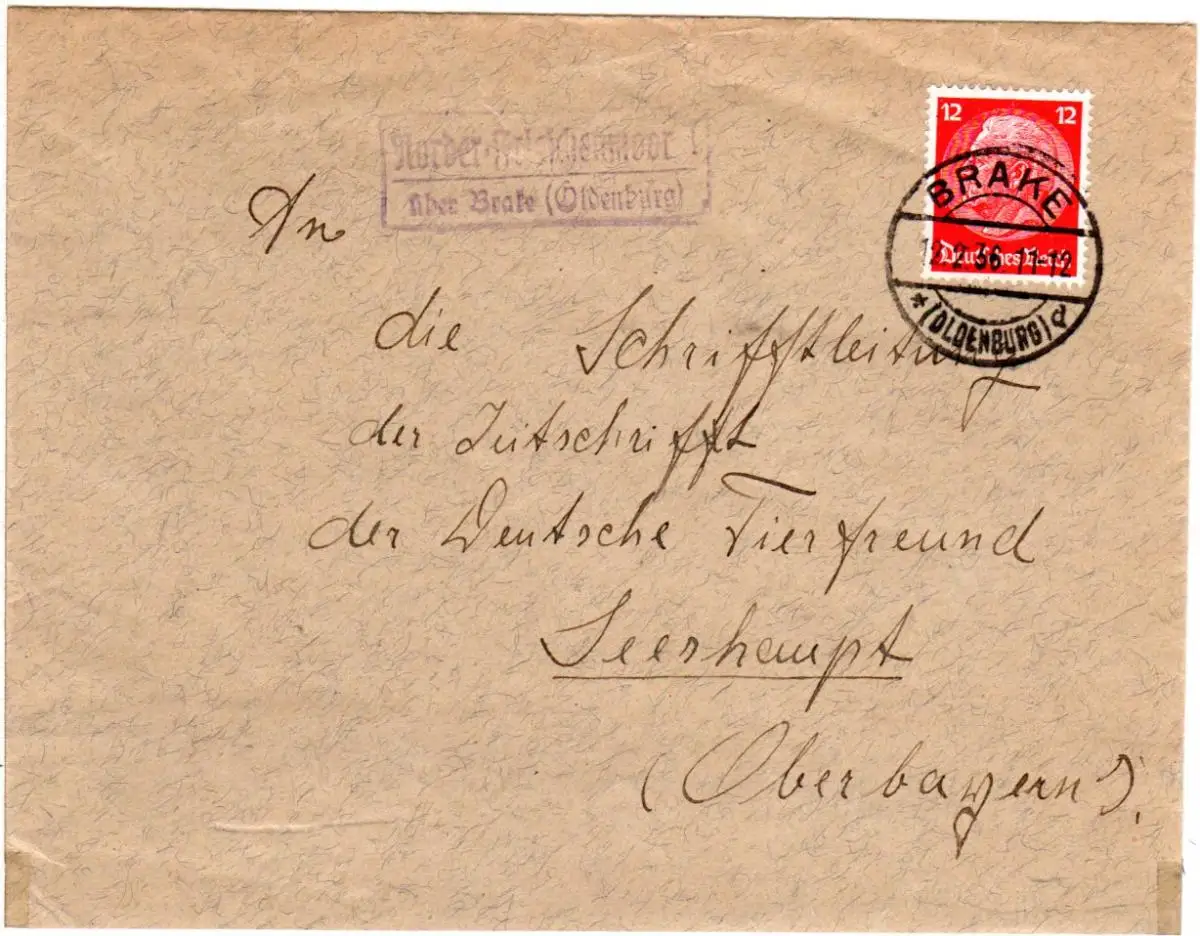 12 12
Norder-Frieschenmoor
über Brake (Oldenburg)
BRAKE
12.2.36 11-12
Deutsches Reich
* (OLDENBURG) d
An
die Schrifftleitung
der Zeitschrifft
der Deutsche Tierfreund
Seeshaupt
(Oberbayern).